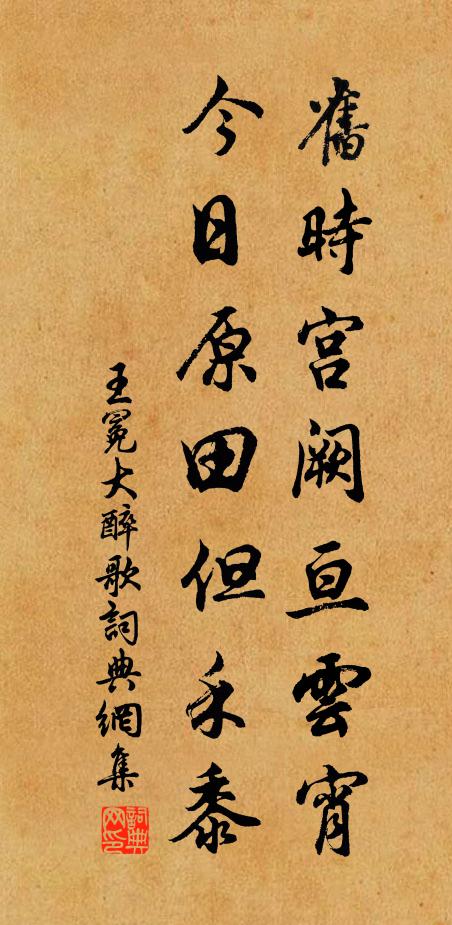 舊時宮闕亘雲霄
今日原田但禾黍
王冕大醉歌詞典網集
詞典网印